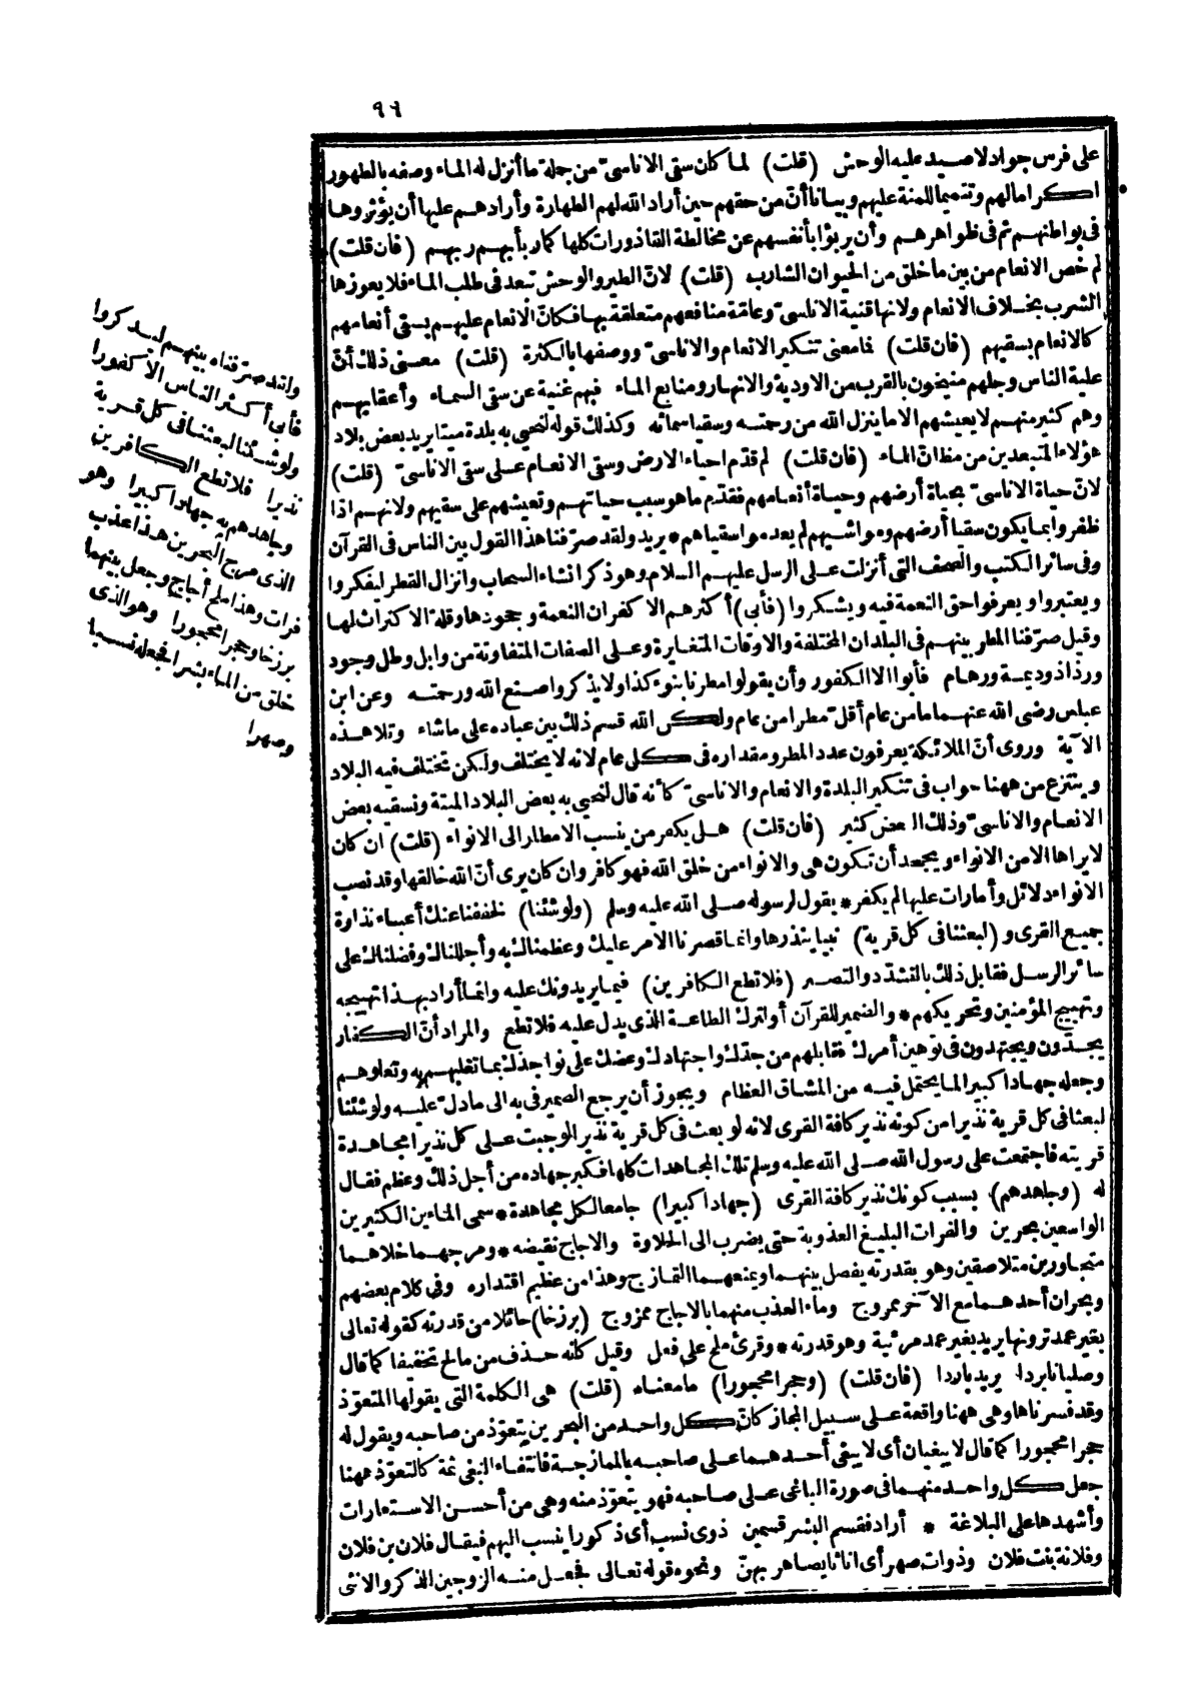 ٩٦
على فرس جواد لا صيد عليه الوحش (قلت) لما كان سقى الاناسىّ من جملة ما أنزل له الماء وصفه بالطهور
اكراما لهم وتتميما للمنة عليهم وبيانا أنّ من حقهم حين أراد الله لهم الطهارة وأرادهم عليها أن يؤثروها
فى بواطنهم ثم فى ظواهرهم وأن يربؤا بأنفسهم عن مخالطة القاذورات كلها كما ربأ بهم ربهم (فان قلت)
لم خص الانعام من بين ما خلق من الحيوان الشارب (قلت) لانّ الطير والوحش تبعد فى طلب الماء فلا يعوزها
الشرب بخلاف الانعام ولانها قنية الاناسىّ وعامّة منافعهم متعلقة بها فكانّ الانعام عليهم بسقى أنعامهم
كالانعام بسقيهم (فان قلت) فما معنى تنكير الانعام والاناسىّ ووصفها بالكثرة (قلت) معنى ذلك أنّ
علية الناس وجلهم منيخون بالقرب من الاودية والانهار ومنابع الماء فبهم غنية عن سقى السماء وأعقابهم
وهم كثير منهم لا يعيشهم الا ما ينزل الله من رحمته وسقيا سمائه وكذلك قوله لنحيى به بلدة ميتا يريد بعض بلاد
هؤلاء المتبعدين من مظانّ الماء (فان قلت) لم قدّم احياء الارض وسقى الانعام على سقى الاناسىّ (قلت)
لانّ حياة الاناسىّ بحياة أرضهم وحياة أنعامهم فقدّم ما هو سبب حياتهم وتعيشهم على سقيهم ولانهم اذا
ظفروا بما يكون سقيا أرضهم ومواشيهم لم يعدموا سقياهم * يريد ولقد صرّفنا هذا القول بين الناس فى القرآن
وفى سائر الكتب والصحف التى أنزلت على الرسل عليهم السلام وهو ذكر انشاء السحاب وانزال القطر ليفكروا
ويعتبروا ويعرفوا حق النعمة فيه ويشكروا (فأبى) أكثرهم الا كفران النعمة وجحودها وقلة الاكتراث لها
وقيل صرّفنا المطر بينهم فى البلدان المختلفة والاوقات المتغايرة وعلى الصفات المتفاوتة من وابل وطل وجود
ورذاذ وديمة ورهام فأبوا الا الكفور وأن يقولوا مطرنا بنوء كذا ولا يذكروا صنع الله ورحمته وعن ابن
عباس رضى الله عنهما ما من عام أقلّ مطرا من عام ولكن الله قسم ذلك بين عباده على ما شاء وتلا هذه
الآية وروى أنّ الملائكة يعرفون عدد المطر ومقداره فى كل عام لانه لا يختلف ولكن تختلف فيه البلاد
وينتزع من ههنا جواب فى تنكير البلدة والانعام والاناسىّ كأنه قال لنحيى به بعض البلاد الميتة ونسقيه بعض
الانعام والاناسىّ وذلك البعض كثير (فان قلت) هل يكفر من ينسب الامطار الى الانواء (قلت) ان كان
لا يراها الا من الانواء ويجحد أن تكون هى والانواء من خلق الله فهو كافر وان كان يرى أنّ الله خالقها وقد نصب
الانواء دلائل وأمارات عليها لم يكفر * يقول لرسوله صلى الله عليه وسلم (ولو شئنا) لخففنا عنك أعباء نذارة
جميع القرى و (لبعثنا فى كل قرية) نبيا ينذرها وانما قصرنا الامر عليك وعظمناك به وأجللناك وفضلناك على
سائر الرسل فقابل ذلك بالتشدّد والتصبر (فلا تطع الكافرين) فيما يريدونك عليه وانما أراد بهذا تهييجه
وتهييج المؤمنين وتحريكهم * والضمير للقرآن أو لترك الطاعة الذى يدل عليه فلا تطع والمراد أنّ الكفار
يجدّون ويجتهدون فى توهين أمرك فقابلهم من جدّك واجتهادك وعضك على نواجذك بما تغلبهم به وتعلوهم
وجعله جهادا كبيرا لما يحتمل فيه من المشاق العظام ويجوز أن يرجع الضمير فى به الى ما دلّ عليه ولو شئنا
لبعثنا فى كل قرية نذيرا من كونه نذير كافة القرى لانه لو بعث فى كل قرية نذيرا لوجبت على كل نذير مجاهدة
قريته فاجتمعت على رسول الله صلى الله عليه وسلم تلك المجاهدات كلها فكبر جهاده من أجل ذلك وعظم فقال
له (وجاهدهم) بسبب كونك نذير كافة القرى (جهادا كبيرا) جامعا لكل مجاهدة * سمى الماءين الكثيرين
الواسعين بحرين والفرات البليغ العذوبة حتى يضرب الى الحلاوة والاجاج نقيضه * ومرجهما خلاهما
متجاورين متلاصقين وهو بقدرته يفصل بينهما ويمنعهما التمازج وهذا من عظيم اقتداره وفى كلام بعضهم
وبحران أحدهما مع الآخر ممروج وماء العذب منهما بالاجاج ممزوج (برزخا) حائلا من قدرته كقوله تعالى
بغير عمد ترونها يريد بغير عمد مرئية وهو قدرته * وقرئ ملح على فعل وقيل كأنه حذف من مالح تخفيفا كما قال
وصليانا بردا يريد باردا (فان قلت) (وحجرا محجورا) ما معناه (قلت) هى الكلمة التى يقولها المتعوّذ
وقد فسرناها وهى ههنا واقعة على سبيل المجاز كانّ كل واحد من البحرين يتعوّذ من صاحبه ويقول له
حجرا محجورا كما قال لا يبغيان أى لا يبغى أحدهما على صاحبه بالممازجة فانتفاء البغى ثمة كالتعوّذ ههنا
جعل كل واحد منهما فى صورة الباغى على صاحبه فهو يتعوّذ منه وهى من أحسن الاستعارات
وأشهدها على البلاغة * أراد فقسم البشر قسمين ذوى نسب أى ذكورا ينسب اليهم فيقال فلان بن فلان
وفلانة بنت فلان وذوات صهر أى اناثا يصاهر بهنّ ونحوه قوله تعالى فجعل منه الزوجين الذكر والانثى
ولقد صرّفناه بينهم ليذكروا
فأبى أكثر الناس الا كفورا
ولو شئنا لبعثنا فى كل قرية
نذيرا فلا تطع الكافرين
وجاهدهم به جهادا كبيرا وهو
الذى مرج البحرين هذا عذب
فرات وهذا ملح أجاج وجعل بينهما
برزخا وحجرا محجورا وهو الذى
خلق من الماء بشرا فجعله نسبا
وصهرا